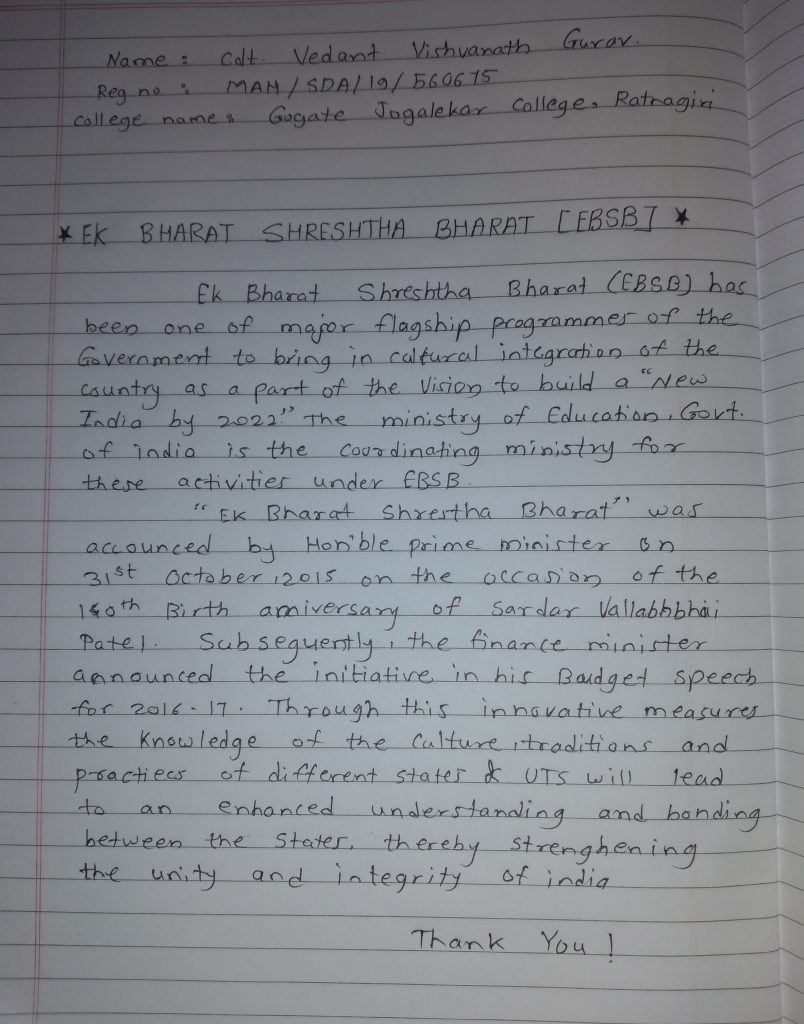 Name : Cdt. Vedant Vishvanath Gurav.
Reg no : MAH/SDA/19/560675
College name : Gogate Jogalekar College, Ratnagiri
* EK BHARAT SHRESHTHA BHARAT [EBSB] *
Ek Bharat Shreshtha Bharat (EBSB) has
been one of major flagship programmes of the
Government to bring in cultural integration of the
Country as a part of the Vision to build a "New
India by 2022." The ministry of Education, Govt.
of india is the coordinating ministry for
these activities under EBSB.
"EK Bharat Shrestha Bharat" was
accounced by Hon'ble prime minister on
31st October, 2015 on the occasion of the
140th Birth amiversary of Sardar Vallabhbhai
Patel. Subsequently, the finance minister
announced the initiative in his Budget speech
for 2016-17. Through this innovative measures
the Knowledge of the Culture, traditions and
practiecs of different states & UTS will lead
to an enhanced understanding and bonding
between the States, thereby strenghening
the unity and integrity of india
Thank You !